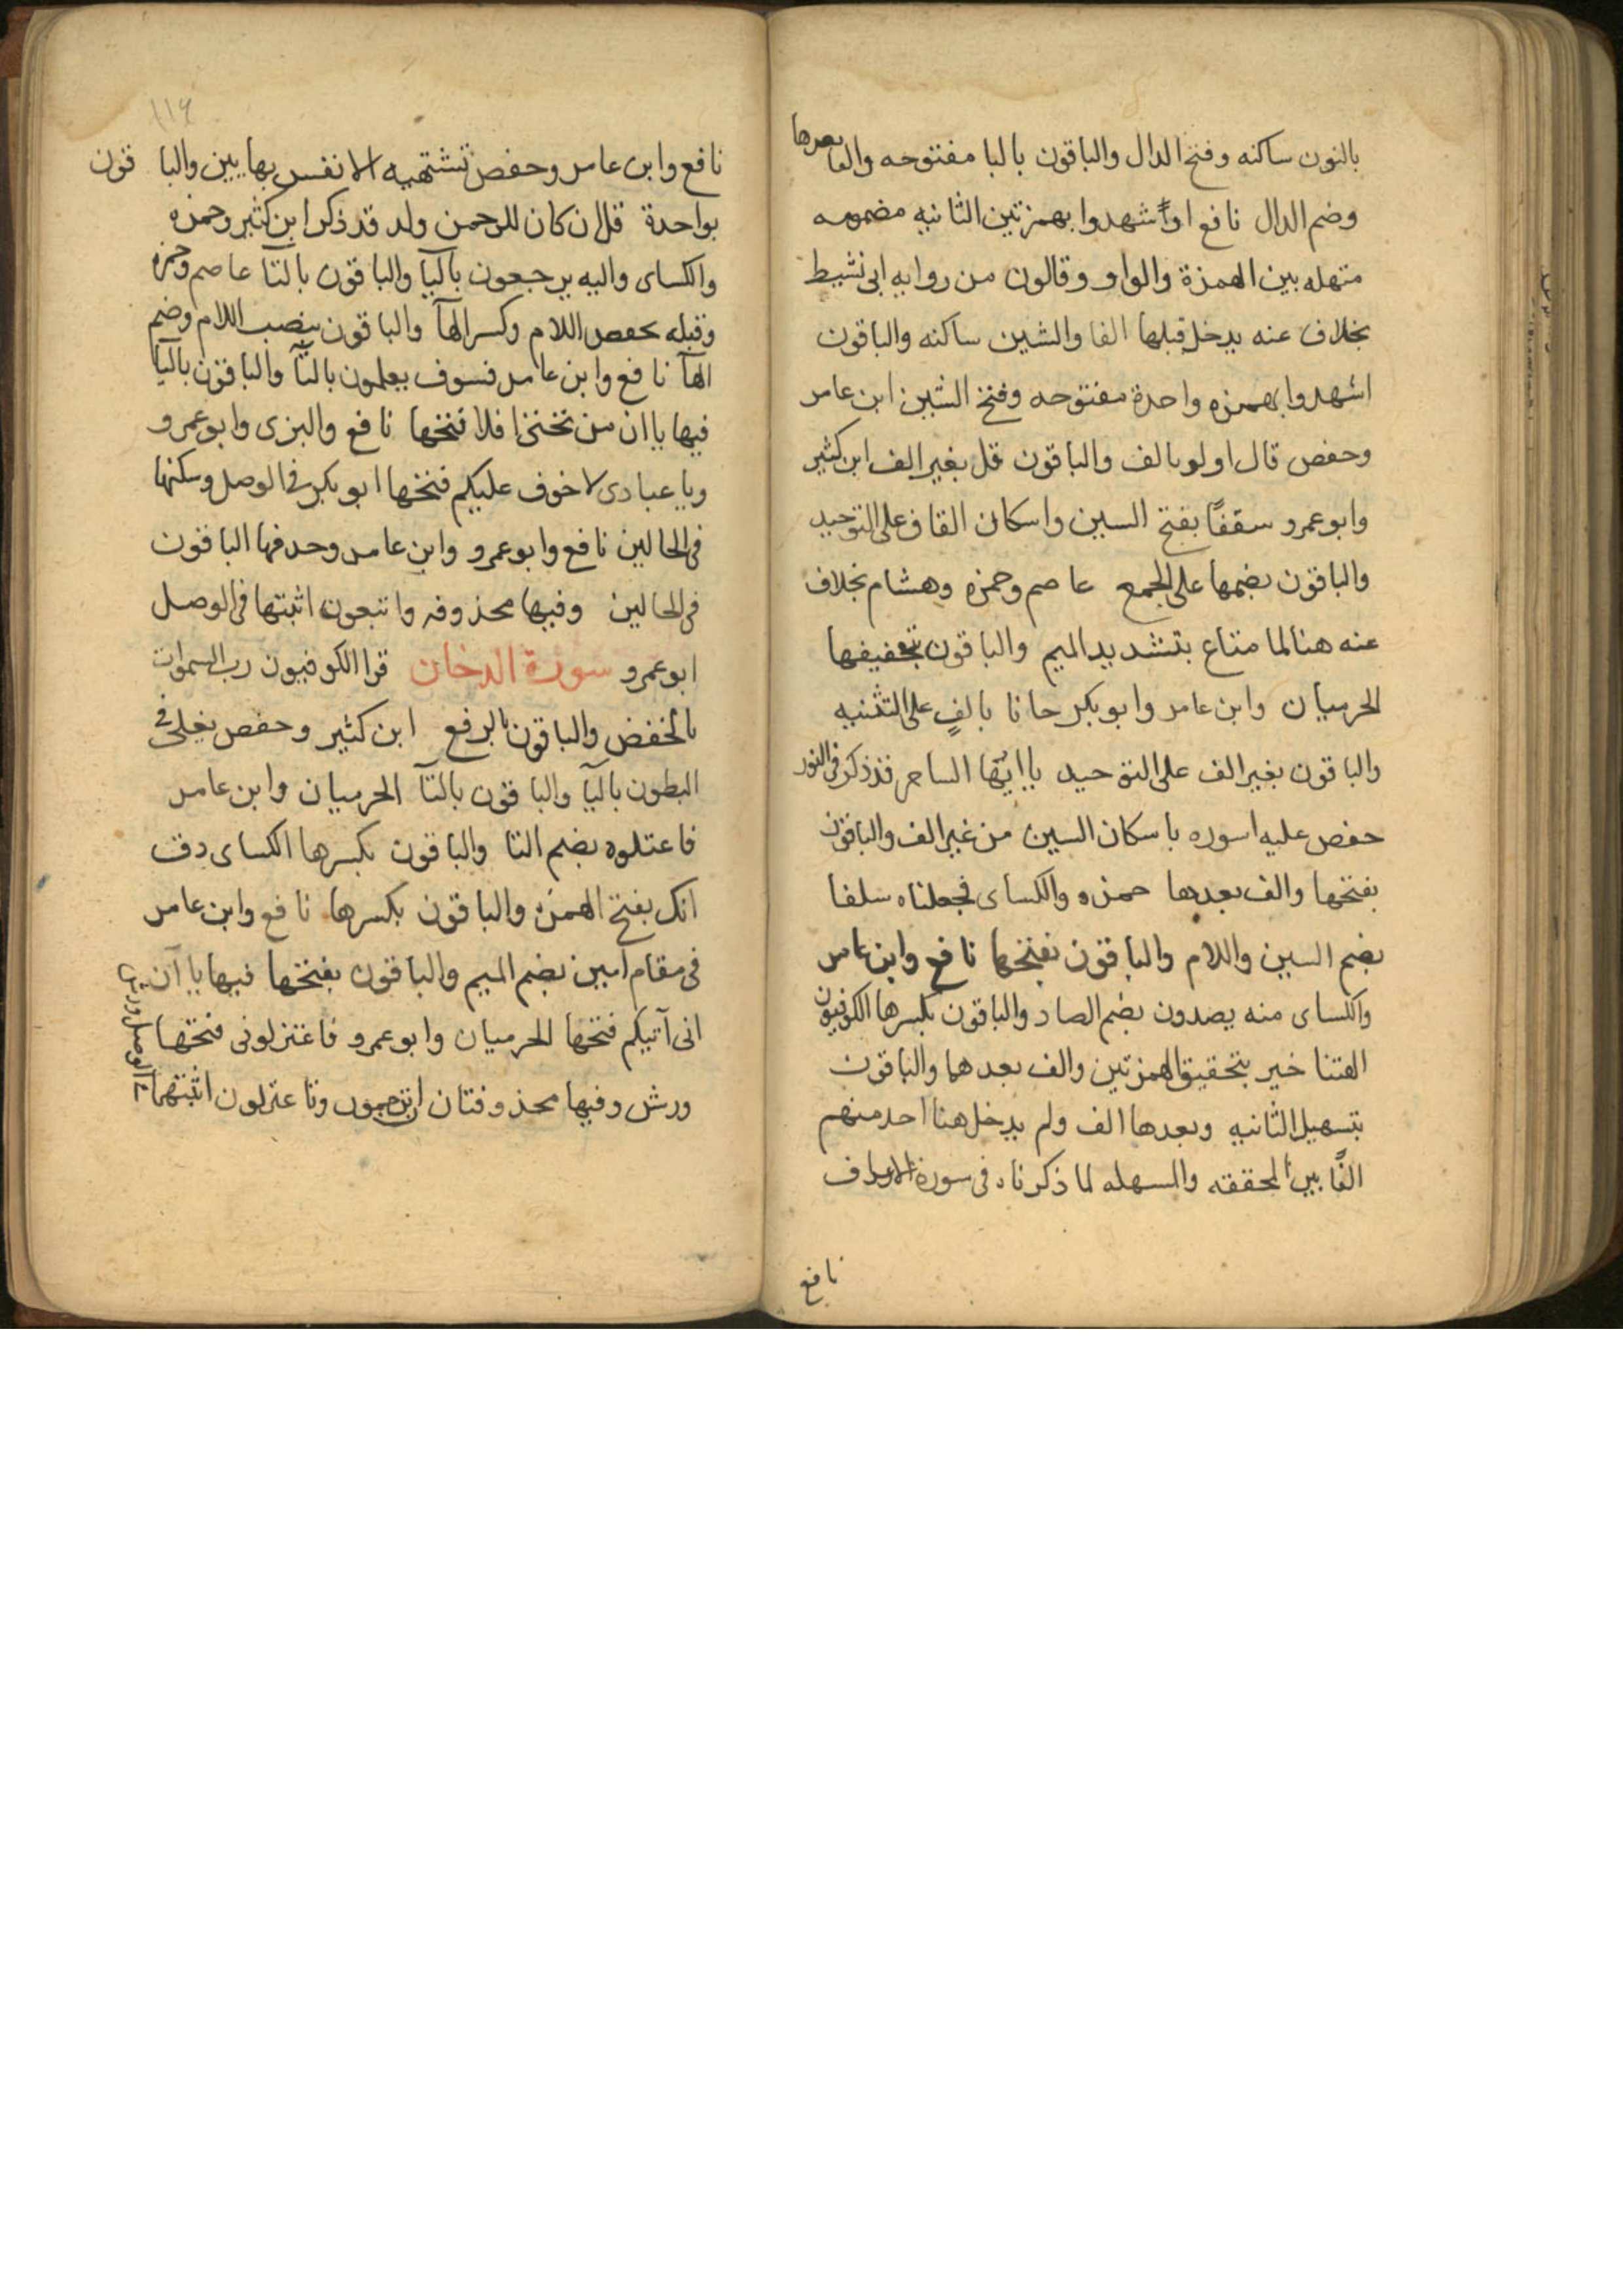 بالنون ساكنه وفتح الدال والباقون بالبا مفتوحه والفا بعدها
وضم الدال نافع اواشهدوا بهمزتين الثانيه مضمومه
متهله بين الهمزة والواو وقالون من روايه ابى نشيط
بخلاف عنه يدخل قبلها الفا والشين ساكنه والباقون
اشهدوا بهمزه واحدة مفتوحه وفتح الشين ابن عامر
وحفص قال اولو بالف والباقون قل بغير الف ابن كثير
وابو عمرو سقفًا بفتح السين واسكان القاف على التوحيد
والباقون بضمها على الجمع عاصم وحمزه وهشام بخلاف
عنه هنا لما متاع بتشديد الميم والباقون بتخفيفها
الحرميان وابن عامر وابو بكر جانا بالفٍ على التثنيه
والباقون بغير الف على التوحيد يا ايها الساحر قد ذكر في النور
حفص عليه اسوره باسكان السين من غير الف والباقون
بفتحها والف بعدها حمزه والكساى فجعلناه سلفا
بضم السين واللام والباقون بفتحها نافع وابن عامر
والكساى منه يصدون بضم الصاد والباقون بكسرها الكوفيون
الهتنا خير بتحقيق الهمزتين والف بعدهما والباقون
بتسهيل الثانيه وبعدها الف ولم يدخل هنا احد منهم
الفًا بين المحققه والمسهله لما ذكرناه فى سورة الاعراف
نافع
١١٦
نافع وابن عامر وحفص تشتهيه الانفس بهايين والباقون
بواحدة قل ان كان للرحمن ولد قد ذكر ابن كثير وحمزه
والكساى واليه يرجعون باليآ والباقون بالتآ عاصم وحمزه
وقيله بخفص اللام وكسر الهآ والباقون بنصب اللام وضم
الهآ نافع وابن عامر فسوف يعلمون بالتآ والباقون باليا
فيها ياان من تحتى افلا فتحها نافع والبزى وابو عمرو
ويا عبادى لا خوف عليكم فتحها ابو بكر فى الوصل وسكنها
فى الحالين نافع وابو عمرو وابن عامر وحذفها الباقون
فى الحالين وفيها محذوفه واتبعون اثبتها فى الوصل
ابو عمرو سورة الدخان قرا الكوفيون رب السموات
بالخفض والباقون بالرفع ابن كثير وحفص يغلى فى
البطون باليآ والباقون بالتآ الحرميان وابن عامر
فاعتلوه بضم التا والباقون بكسرها الكساى ذق
انك بفتح الهمزه والباقون بكسرها نافع وابن عامر
فى مقام امين بضم الميم والباقون بفتحها فيها ياآن
انى آتيكم فتحها الحرميان وابو عمرو فاعتزلونى فتحها
ورش وفيها محذوفتان ان ترجمون وفاعتزلون اثبتهما
فى الوصل ورش